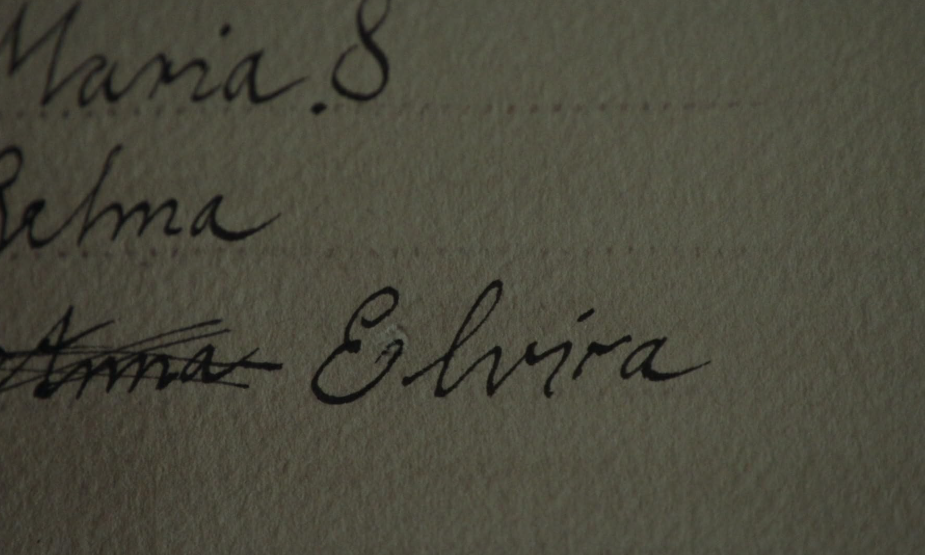 Maria. S
Selma
Anna Elvira